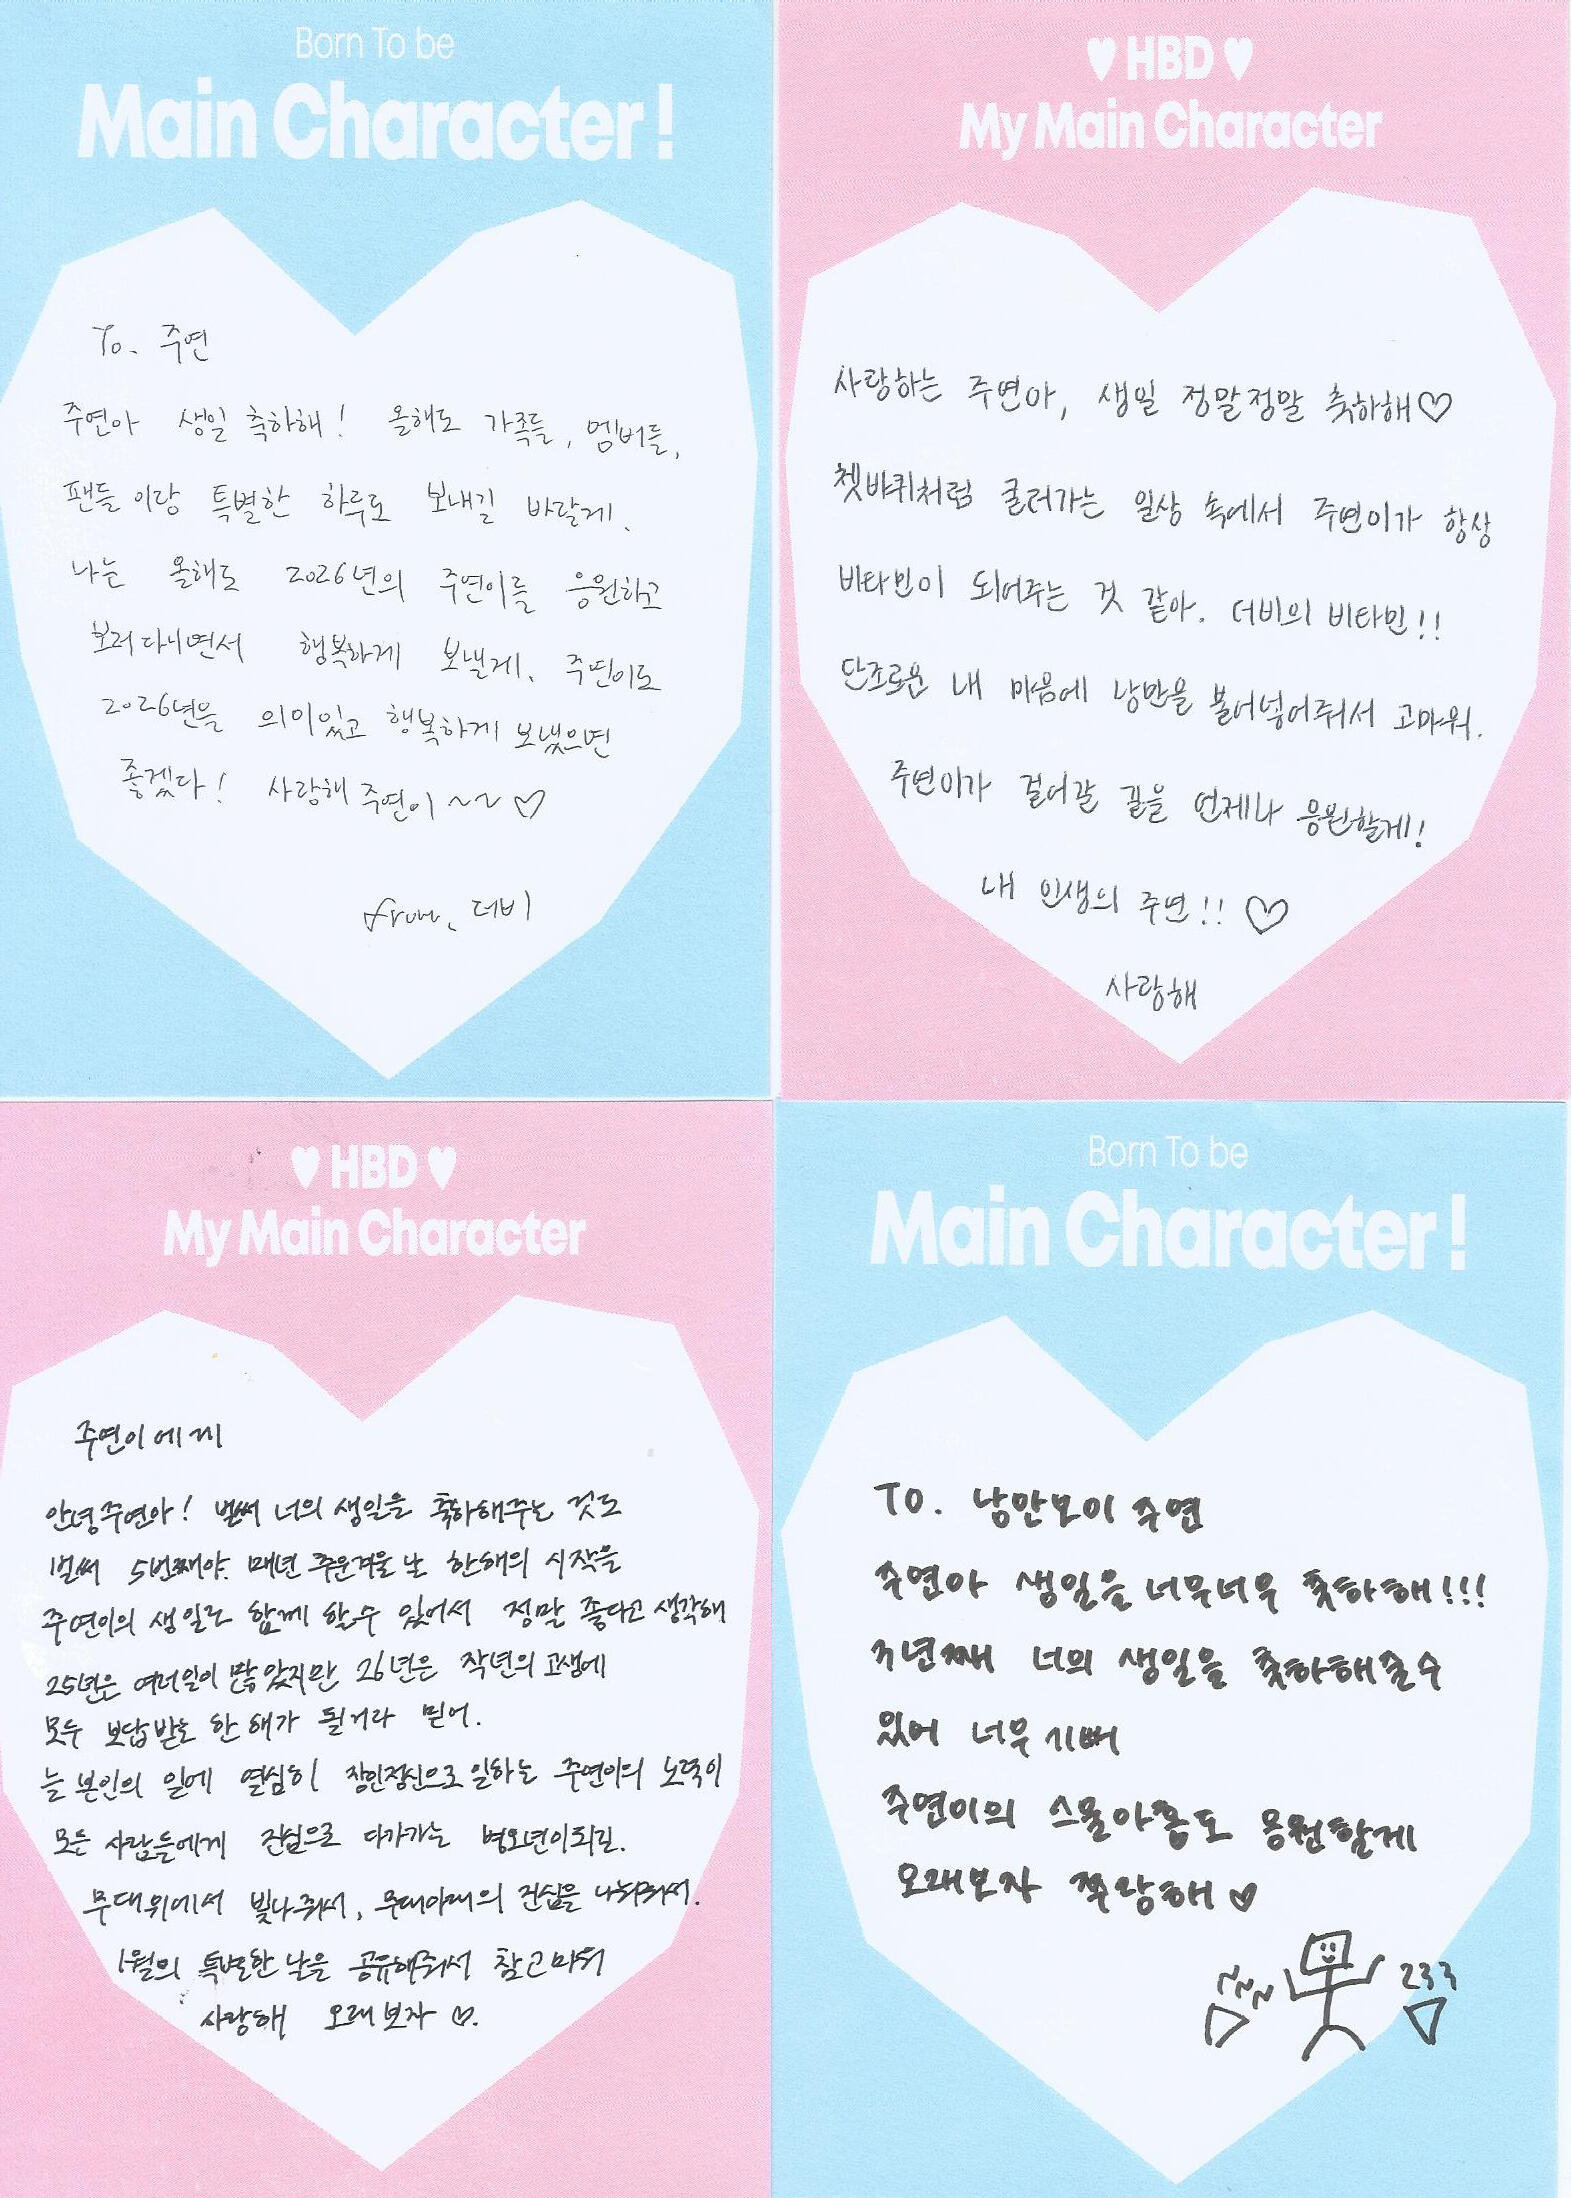 Born To be
Main Character!
To. 주연
주연아 생일 축하해! 올해도 가족들, 멤버들,
팬들이랑 특별한 하루도 보내길 바랄게.
나는 올해도 2026년의 주연이를 응원하고
보러다니면서 행복하게 보낼게. 주연이도
2026년을 의미있고 행복하게 보냈으면
좋겠다! 사랑해 주연이 ~~ ♡
from. 더비
♥ HBD ♥
My Main Character
사랑하는 주연아, 생일 정말정말 축하해♡
쳇바퀴처럼 굴러가는 일상 속에서 주연이가 항상
비타민이 되어주는 것 같아. 더비의 비타민!!
단조로운 내 마음에 낭만을 불어넣어줘서 고마워.
주연이가 걸어갈 길을 언제나 응원할게!
내 인생의 주연!! ♡
사랑해
♥ HBD ♥
My Main Character
주연이에게
안녕주연아! 벌써 너의 생일을 축하해주는 것도
벌써 5번째야. 매년 추운겨울날 한해의 시작을
주연이의 생일로 함께 할수 있어서 정말 좋다고 생각해
25년은 여러일이 많았지만 26년은 작년의 고생에
모두 보답받는 한해가 될거라 믿어.
늘 본인의 일에 열심히 장인정신으로 일하는 주연이의 노력이
모든 사람들에게 진심으로 다가가는 병오년이되길.
무대위에서 빛나줘서, 무대아래의 진심을 나눠줘서.
1월의 특별한날을 공유해줘서 참고마워
사랑해 오래보자 ♡.
Born To be
Main Character!
TO. 낭만보이 주연
주연아 생일을 너무너무 축하해!!!
3년째 너의 생일을 축하해줄수
있어 너무 기뻐
주연이의 스물아홉도 응원할게
오래보자 쭈랑해 ♥